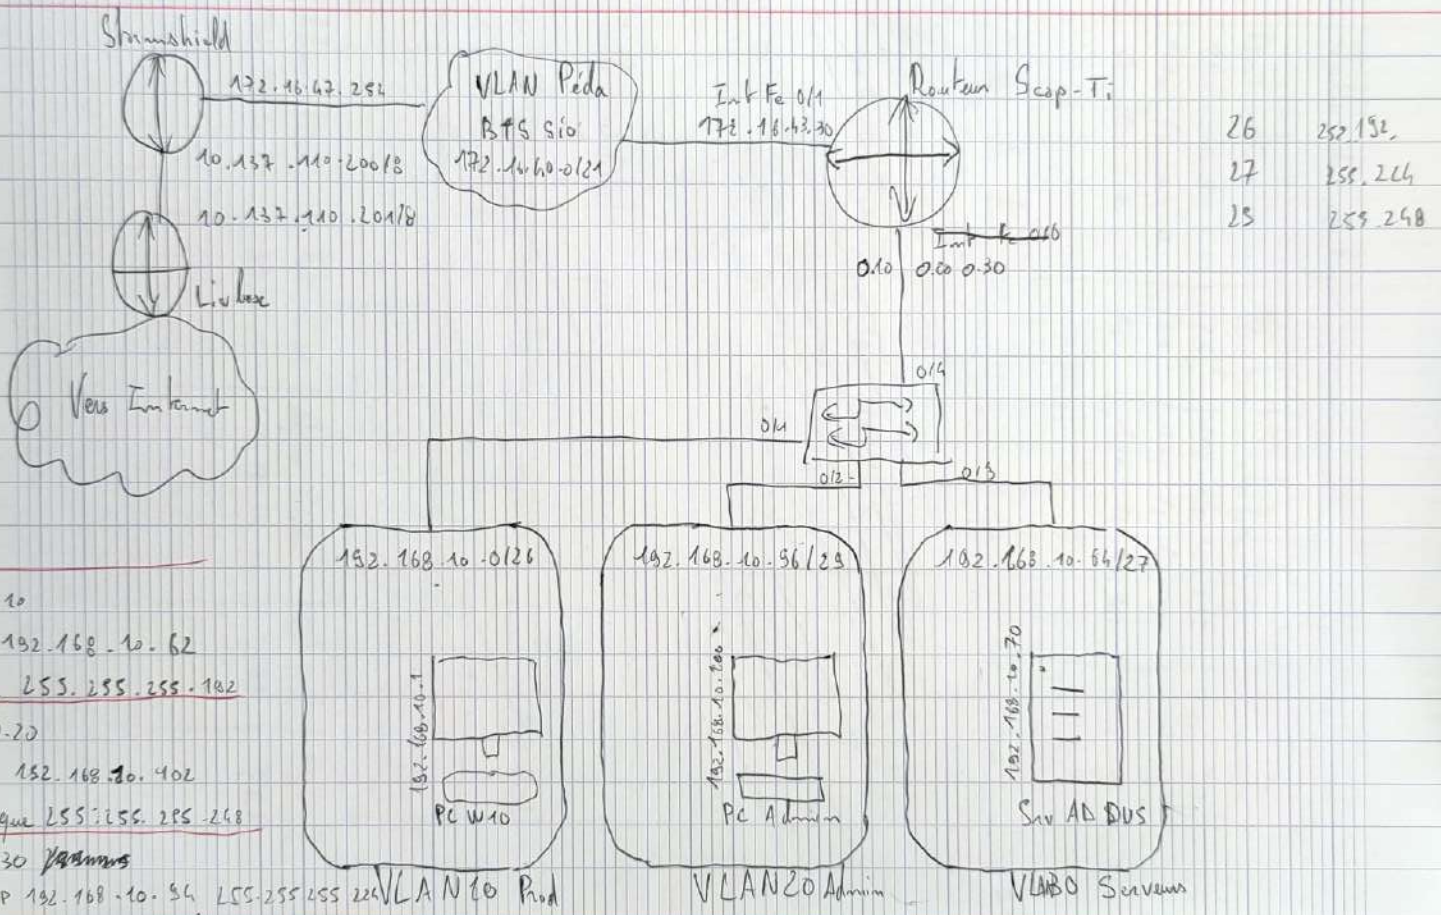 Stormshield
172.16.47.254
10.137.110.200/8
10.137.110.201/8
Livbox
Vers Internet
VLAN Péda
BTS Sio
172.16.40.0/21
Int Fe 0/1
172.16.43.30
Routeur Scop-Ti
0.10 0.20 0.30
26 252.192.
27 255.224
29 255.248
0/4
0/1
0/2
0/3
192.168.10.0/26
192.168.10.1
PC W10
VLAN10 Prod
192.168.10.96/29
192.168.10.100
PC Admin
VLAN20 Admin
192.168.10.64/27
192.168.10.70
Srv AD DNS
VLAN30 Serveurs
10
192.168.10.62
255.255.255.192
.20
192.168.10.102
que 255.255.255.248
30
P 192.168.10.94 255.255.255.224